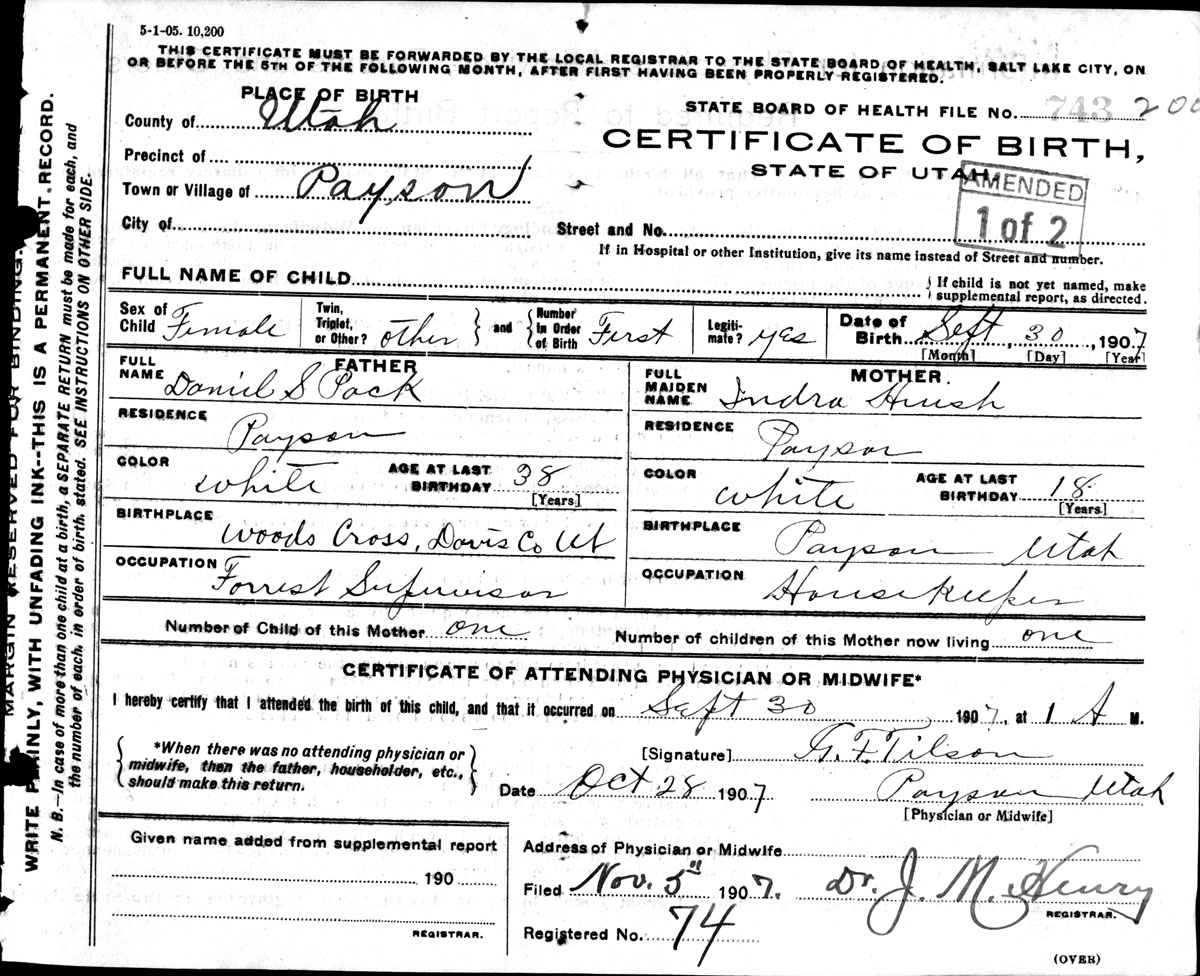 5-1-05. 10,200
THIS CERTIFICATE MUST BE FORWARDED BY THE LOCAL REGISTRAR TO THE STATE BOARD OF HEALTH, SALT LAKE CITY, ON
OR BEFORE THE 5TH OF THE FOLLOWING MONTH, AFTER FIRST HAVING BEEN PROPERLY REGISTERED.
PLACE OF BIRTH
County of Utah
Precinct of
Town or Village of Payson
City of
STATE BOARD OF HEALTH FILE No. 743 200
CERTIFICATE OF BIRTH,
STATE OF UTAH
AMENDED
1 of 2
Street and No.
If in Hospital or other Institution, give its name instead of Street and number.
FULL NAME OF CHILD
{If child is not yet named, make
supplemental report, as directed.
Sex of Child Female
Twin, Triplet, or Other? other } and { Number In Order of Birth First
Legitimate? yes
Date of Birth Sept 30, 1907
[Month] [Day] [Year]
FATHER
FULL NAME Daniel S Pack
RESIDENCE Payson
COLOR white AGE AT LAST BIRTHDAY 38
[Years]
BIRTHPLACE Woods Cross, Davis Co Ut
OCCUPATION Forrest Supervisor
MOTHER.
FULL MAIDEN NAME Indra
RESIDENCE Payson
COLOR white AGE AT LAST BIRTHDAY 18
[Years]
BIRTHPLACE Payson Utah
OCCUPATION House Keeper
Number of Child of this Mother one Number of children of this Mother now living one
CERTIFICATE OF ATTENDING PHYSICIAN OR MIDWIFE*
I hereby certify that I attended the birth of this child, and that it occurred on Sept 30, 1907, at 1 A M.
{*When there was no attending physician or
midwife, then the father, householder, etc.,
should make this return.}
[Signature] G. F. Tilson
Date Oct 28 1907 Payson Utah
[Physician or Midwife]
Given name added from supplemental report
190
REGISTRAR.
Address of Physician or Midwife
Filed Nov. 5" 1907. Dr. J. M. Henry
REGISTRAR.
Registered No. 74
(OVER)
MARGIN RESERVED FOR BINDING.
WRITE PLAINLY, WITH UNFADING INK--THIS IS A PERMANENT RECORD.
N. B.—In case of more than one child at a birth, a SEPARATE RETURN must be made for each, and
the number of each, in order of birth, stated. SEE INSTRUCTIONS ON OTHER SIDE.